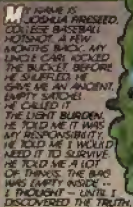 MY NAME IS
JOSHUA FIRESEED,
COLLEGE BASEBALL
HOTSHOT. A FEW
MONTHS BACK, MY
UNCLE CARL KICKED
THE BUCKET. BEFORE
HE SHUFFLED, HE
GAVE ME AN ANCIENT,
EMPTY SATCHEL.
HE CALLED IT
THE LIGHT BURDEN.
HE TOLD ME IT WAS
MY RESPONSIBILITY.
HE TOLD ME I WOULD
NEED IT TO SURVIVE.
HE TOLD ME A LOT
OF THINGS. THE BAG
WAS EMPTY INSIDE --
I THOUGHT -- UNTIL I
DISCOVERED THE TRUTH.